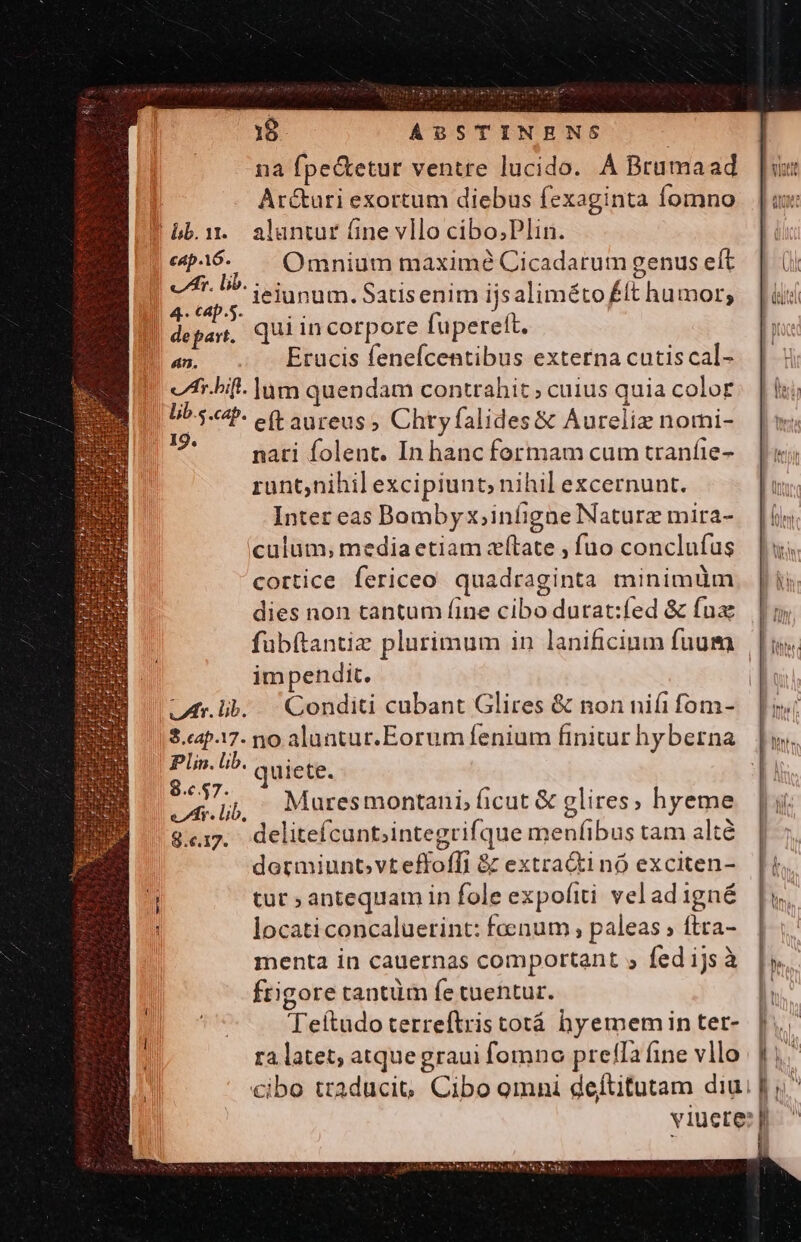 18 ABSTINENS
na ſpectetur ventre lucido. A Bruma ad
Arcturi exortum diebus ſexaginta ſomno
lib. 11. aluntur ſine vllo cibo, Plin.
cap.16. Omnium maximè Cicadarum genus eſt
Ar. lib. ieiunum. Satis enim ijs alimēto eſt humor,
4. cap.5.
de part. qui in corpore ſupereſt.
an. Erucis ſeneſcentibus externa cutis cal-
Ar. hiſt. lum quendam contrahit, cuius quia color
lib.5.cap. eſt aureus, Chryſalides & Aureliæ nomi-
19. nari ſolent. In hanc formam cum tranſie-
runt, nihil excipiunt, nihil excernunt.
Inter eas Bombyx, inſigne Naturæ mira-
culum, media etiam æſtate, ſuo concluſus
cortice ſericeo quadraginta minimùm
dies non tantum ſine cibo durat: ſed & ſuæ
ſubſtantiæ plurimum in lanificium ſuum
impendit.
Ar. lib. Conditi cubant Glires & non niſi ſom-
8.cap.17. no aluntur. Eorum ſenium finitur hyberna
Plin. lib. quiete.
8.c.57.
Ar. lib. Mures montani, ſicut & glires, hyeme
8.c.17. deliteſcunt, integriſque menſibus tam altè
dormiunt, vt effoſſi & extracti nō exciten-
tur, antequam in ſole expoſiti vel ad ignē
locati concaluerint: fœnum, paleas, ſtra-
menta in cauernas comportant, ſed ijs à
frigore tantùm ſe tuentur.
Teſtudo terreſtris totâ hyemem in ter-
ra latet, atque graui ſomno preſſa ſine vllo
cibo traducit, Cibo omni deſtitutam diu
viuere